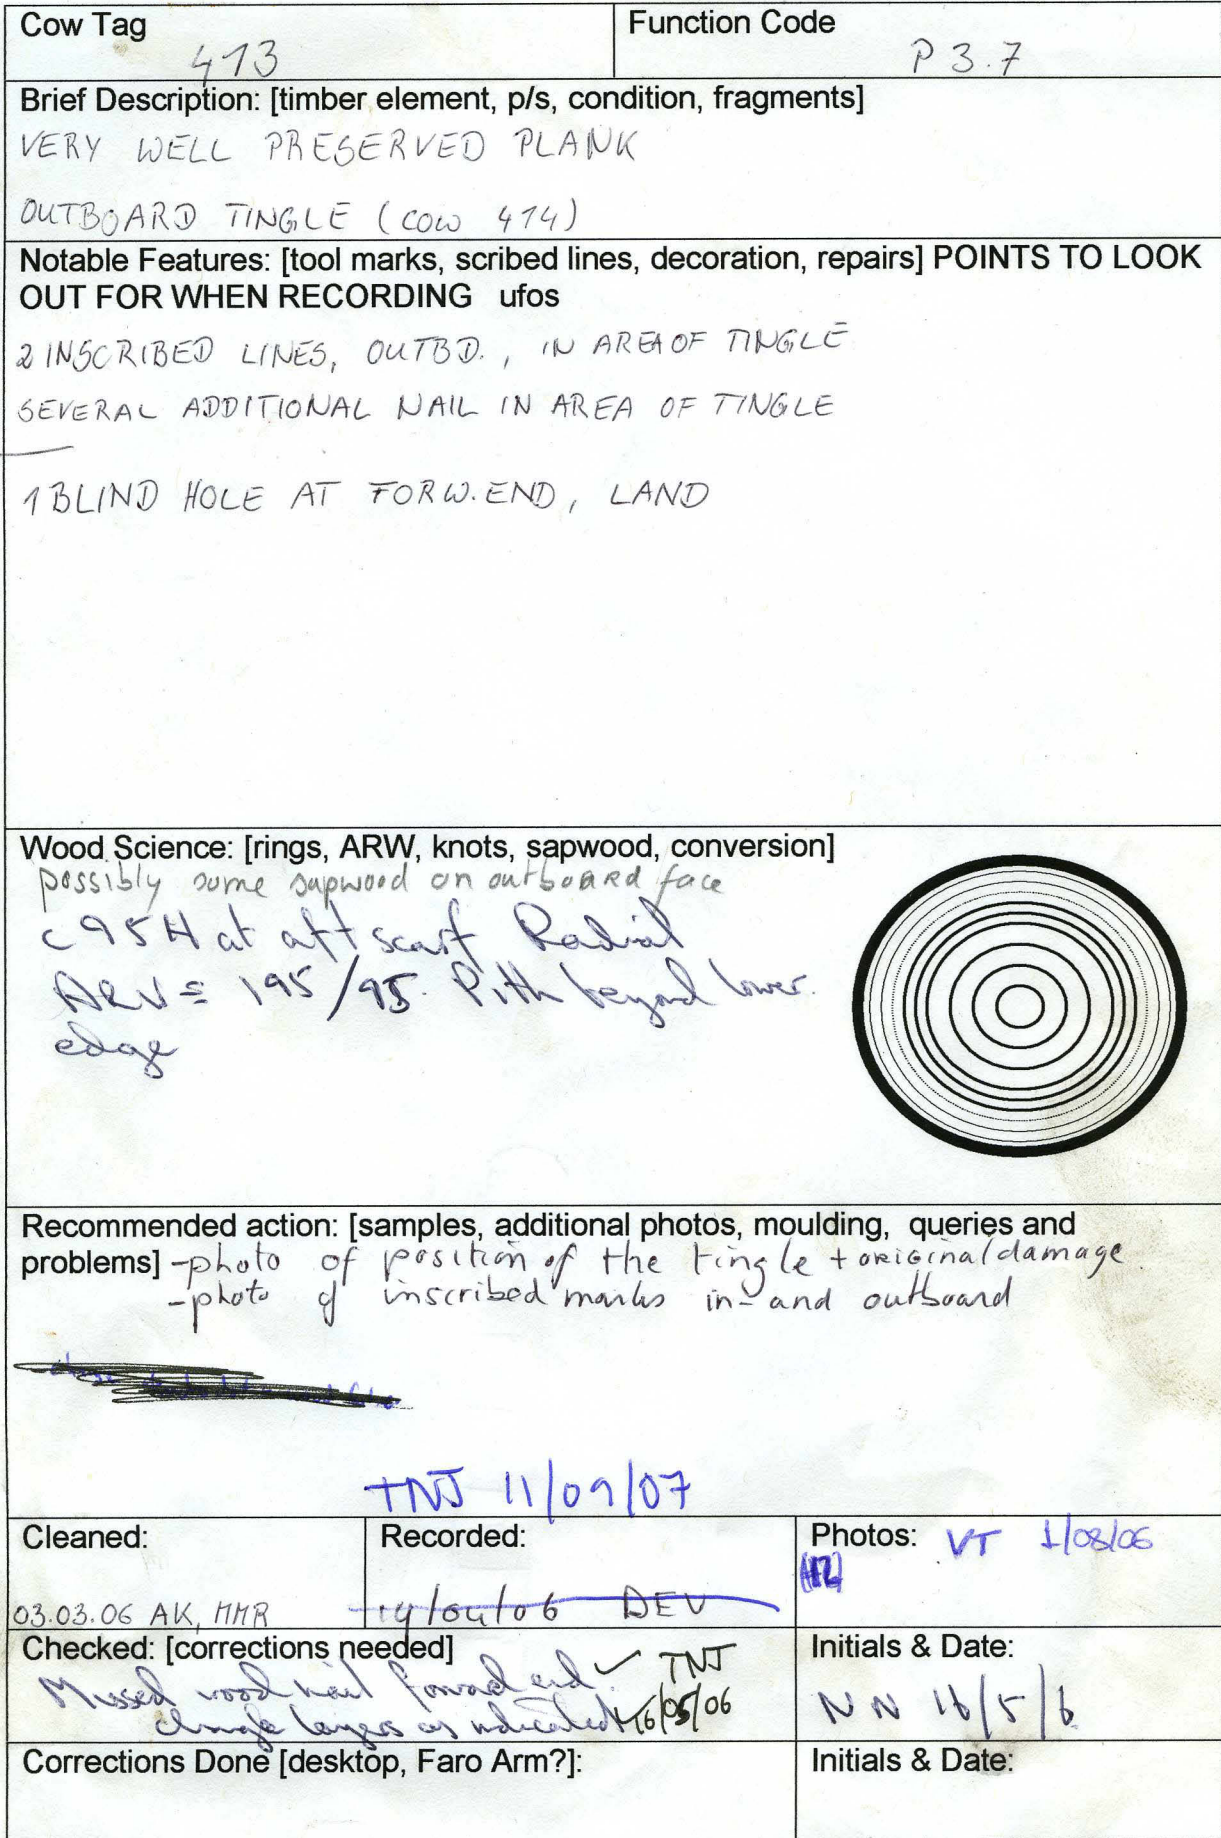 Cow Tag
413
Function Code
P 3.7
Brief Description: [timber element, p/s, condition, fragments]
VERY WELL PRESERVED PLANK
OUTBOARD TINGLE (COW 414)
Notable Features: [tool marks, scribed lines, decoration, repairs] POINTS TO LOOK
OUT FOR WHEN RECORDING ufos
2 INSCRIBED LINES, OUTBD., IN AREA OF TINGLE
SEVERAL ADDITIONAL NAIL IN AREA OF TINGLE
1 BLIND HOLE AT FORW. END, LAND
Wood Science: [rings, ARW, knots, sapwood, conversion]
possibly some sapwood on outboard face
c 95 H at aft scarf Radial
= 195/95. Pith beyond lower
edge
Recommended action: [samples, additional photos, moulding, queries and
problems] -photo of position of the tingle + original damage
-photo of inscribed marks in- and outboard
TNJ 11/09/07
Cleaned:
03.03.06 AK, MMR
Recorded:
19/04/06 DEV
Photos: VT 1/08/06
Checked: [corrections needed]
Missed wood nail forward end. ✓ TNJ
change layers as indicated 16/05/06
Initials & Date:
NN 16/5/6
Corrections Done [desktop, Faro Arm?]:
Initials & Date: